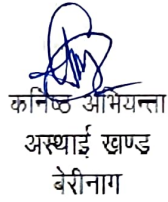 कनिष्ठ अभियन्ता
अस्थाई खण्ड
बेरीनाग